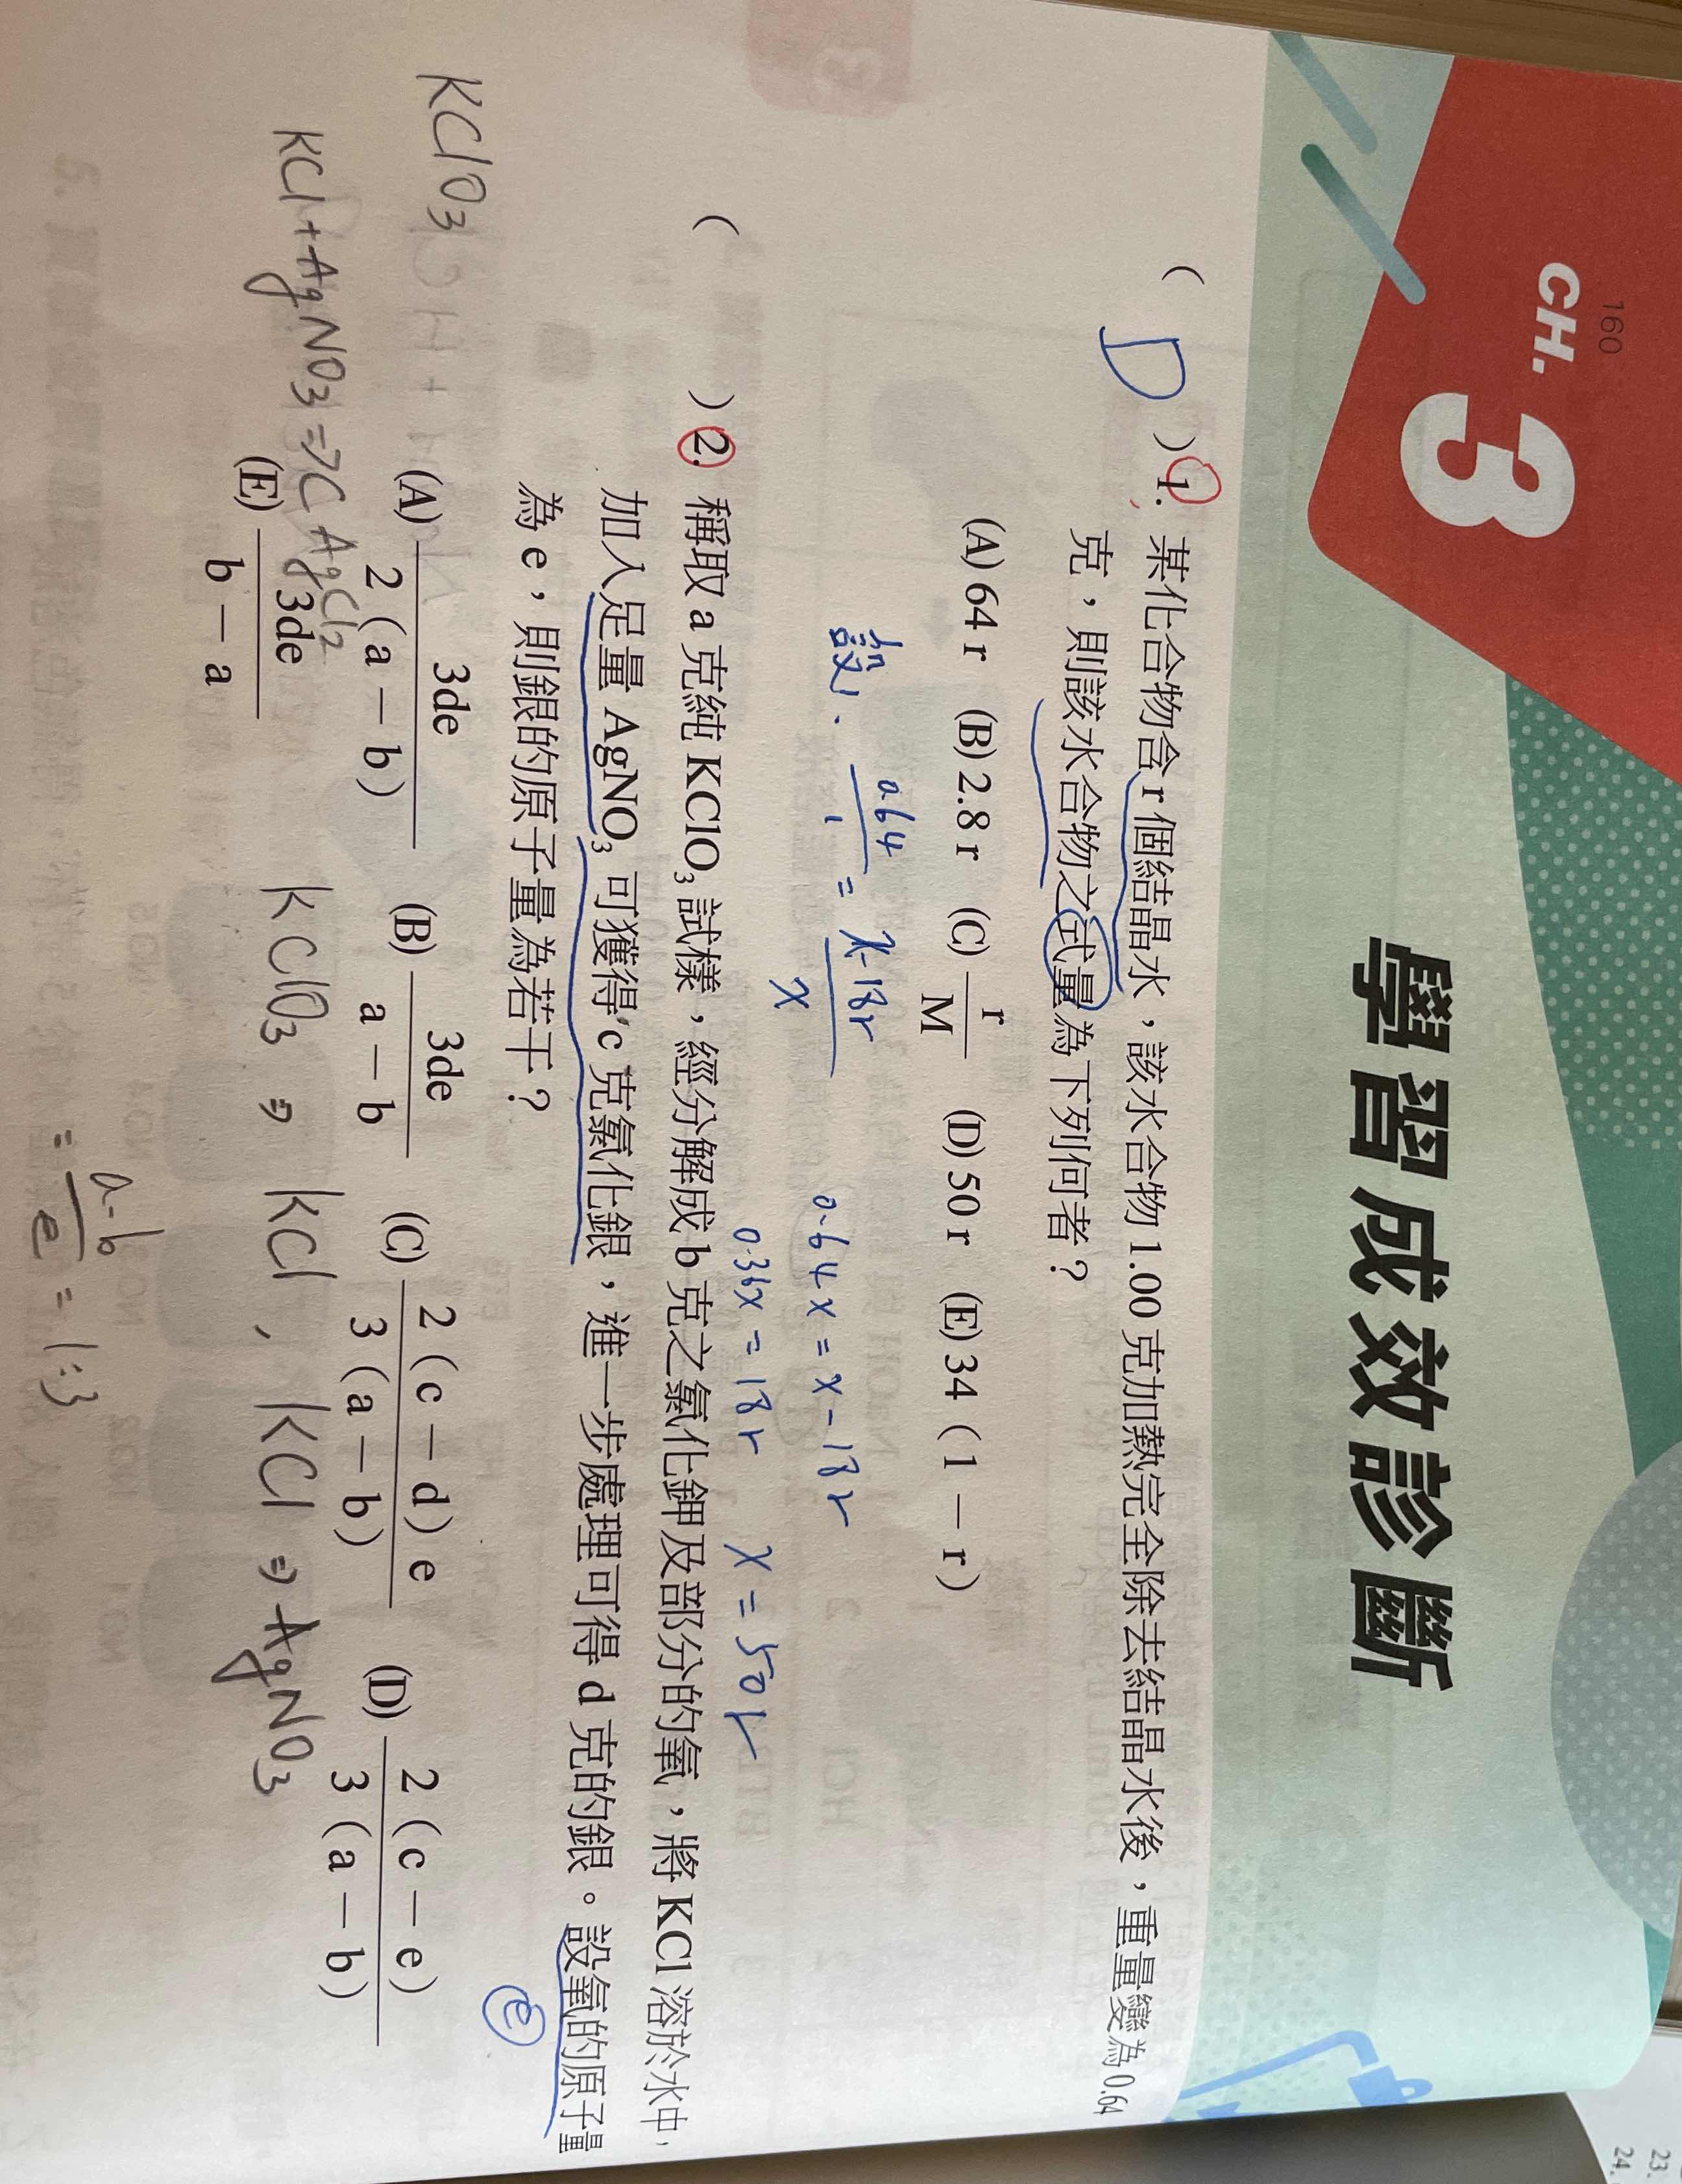 160
CH. 3
學習成效診斷
( D ) 1. 某化合物含 r 個結晶水，該水合物 1.00 克加熱完全除去結晶水後，重量變為 0.64
克，則該水合物之式量為下列何者？
(A) 64 r (B) 2.8 r (C) r/M (D) 50 r (E) 34（1 － r）
設1. 0.64/1 = x-18r/x
0.64x = x-18r
0.36x = 18r x = 50r
( ) 2. 稱取 a 克純 KClO₃ 試樣，經分解成 b 克之氯化鉀及部分的氧，將 KCl 溶於水中，
加入足量 AgNO₃ 可獲得 c 克氯化銀，進一步處理可得 d 克的銀。設氧的原子量
為 e，則銀的原子量為若干？
(e)
(A) 3de/2（a － b） (B) 3de/a － b (C) 2（c － d）e/3（a － b） (D) 2（c － e）/3（a － b）
(E) 3de/b － a
KClO₃
KCl + AgNO₃ => C AgCl₂
KClO₃ ⇒ KCl , KCl ⇒ AgNO₃
= a-b/e = 1:3
23.
24.